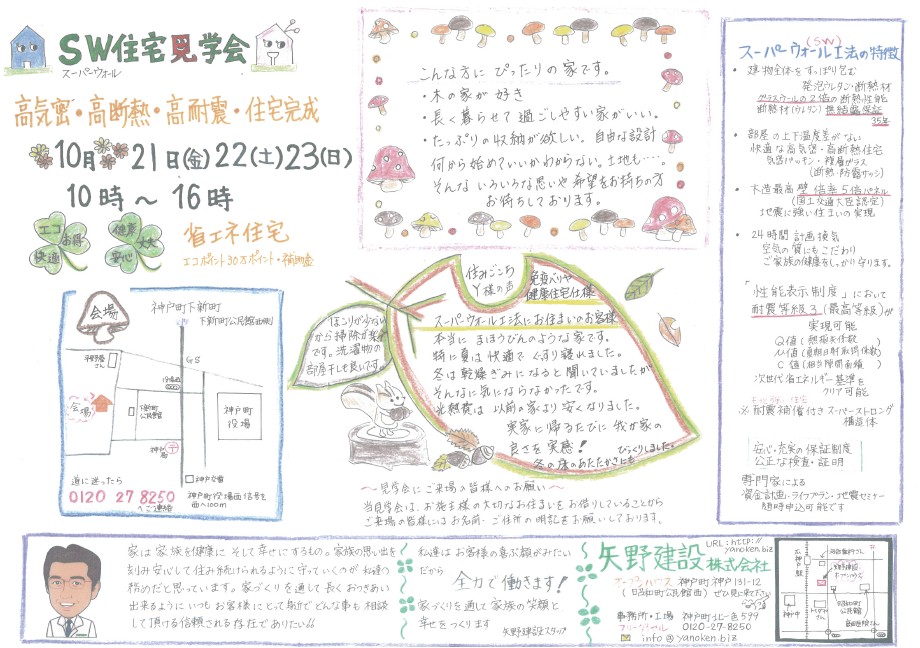 SW住宅見学会
スーパーウォール
高気密・高断熱・高耐震・住宅完成
10月 21日(金) 22(土) 23(日)
10時〜16時
エコ お得 快適
健康 丈夫 安心
省エネ住宅
エコポイント30万ポイント・補助金
こんな方に ぴったりの 家です。
・木の家が 好き
・長く暮らせて 過ごしやすい家がいい。
・たっぷりの収納が欲しい。自由な設計
何から始めていいかわからない。土地も…。
そんな いろいろな思いや 希望をお持ちの方
お待ちしております。
スーパーウォール(SW)工法の特徴
・建物全体をすっぽり包む
発泡ウレタン・断熱材
グラスウールの2倍の断熱性能
断熱材(ウレタン) 無結露保証
35年
・部屋の上下温度差がない
快適な高気密・高断熱住宅
気密パッキン・複層ガラス
(断熱・防露サッシ)
・木造最高 壁倍率5倍パネル
(国土交通大臣認定)
地震に強い住まいの実現
・24時間 計画換気
空気の質にもこだわり
ご家族の健康をしっかり守ります。
「性能表示制度」において
耐震等級3(最高等級)が
実現可能
Q値(熱損失係数)
μ値(夏期日射取得係数)
C値(相当隙間面積)
次世代省エネルギー基準を
クリア可能
※耐震補償付きスーパーストロング
構造体
安心・充実の保証制度
公正な検査・証明
専門家による
資金計画・ライフプラン・地震セミナー
随時申込可能です
会場
神戸町下新町
下新町公民館西側
GS
平野屋さん
役場西
会場
下新町公民館
神戸町役場
神戸
神戸交番
道に迷ったら
0120 27 8250
へご連絡
神戸町役場西信号を
西へ100m
ほこりが少ない
から掃除が楽
です。洗濯物の
部屋干しも良いです。
住みごこち
Y様の声
免疫べりや
健康住宅仕様
スーパーウォール工法にお住まいのお客様
本当に まほうびんのような家です。
特に夏は快適で ぐっすり寝れました。
冬は乾燥ぎみになると聞いていましたが
そんなに気にならなかったです。
光熱費は 以前の家より安くなりました。
実家に帰るたびに 我が家の
良さを実感! びっくりしました。
冬の床のあたたかさにも
〜見学会にご来場の皆様へのお願い〜
当見学会は、お施主様の大切なお住まいをお借りしていることから
ご来場の皆様にはお名前・ご住所の明記をお願いしております。
家は家族を健康に そして幸せにするもの。家族の思い出を
刻み安心して住み続けられるように守っていくのが私達の
務めだと思っています。家づくりを通して長くおつきあい
出来るようにいつもお客様にとって身近でどんな事も相談
して頂ける信頼される存在でありたい!!
私達はお客様の喜ぶ顔がみたい
だから
全力で働きます!
家づくりを通して家族の笑顔と
幸せをつくります
矢野建設スタッフ
矢野建設株式会社
URL:http://yanoken.biz
オープンハウス 神戸町神戸131-12
(昭和町公民館西) ぜひ見に来て下さい
事務所・工場 神戸町北一色599
フリーダイヤル 0120-27-8250
info@yanoken.biz
広神戸駅
矢野建設
オープンハウス
昭和町
公民館